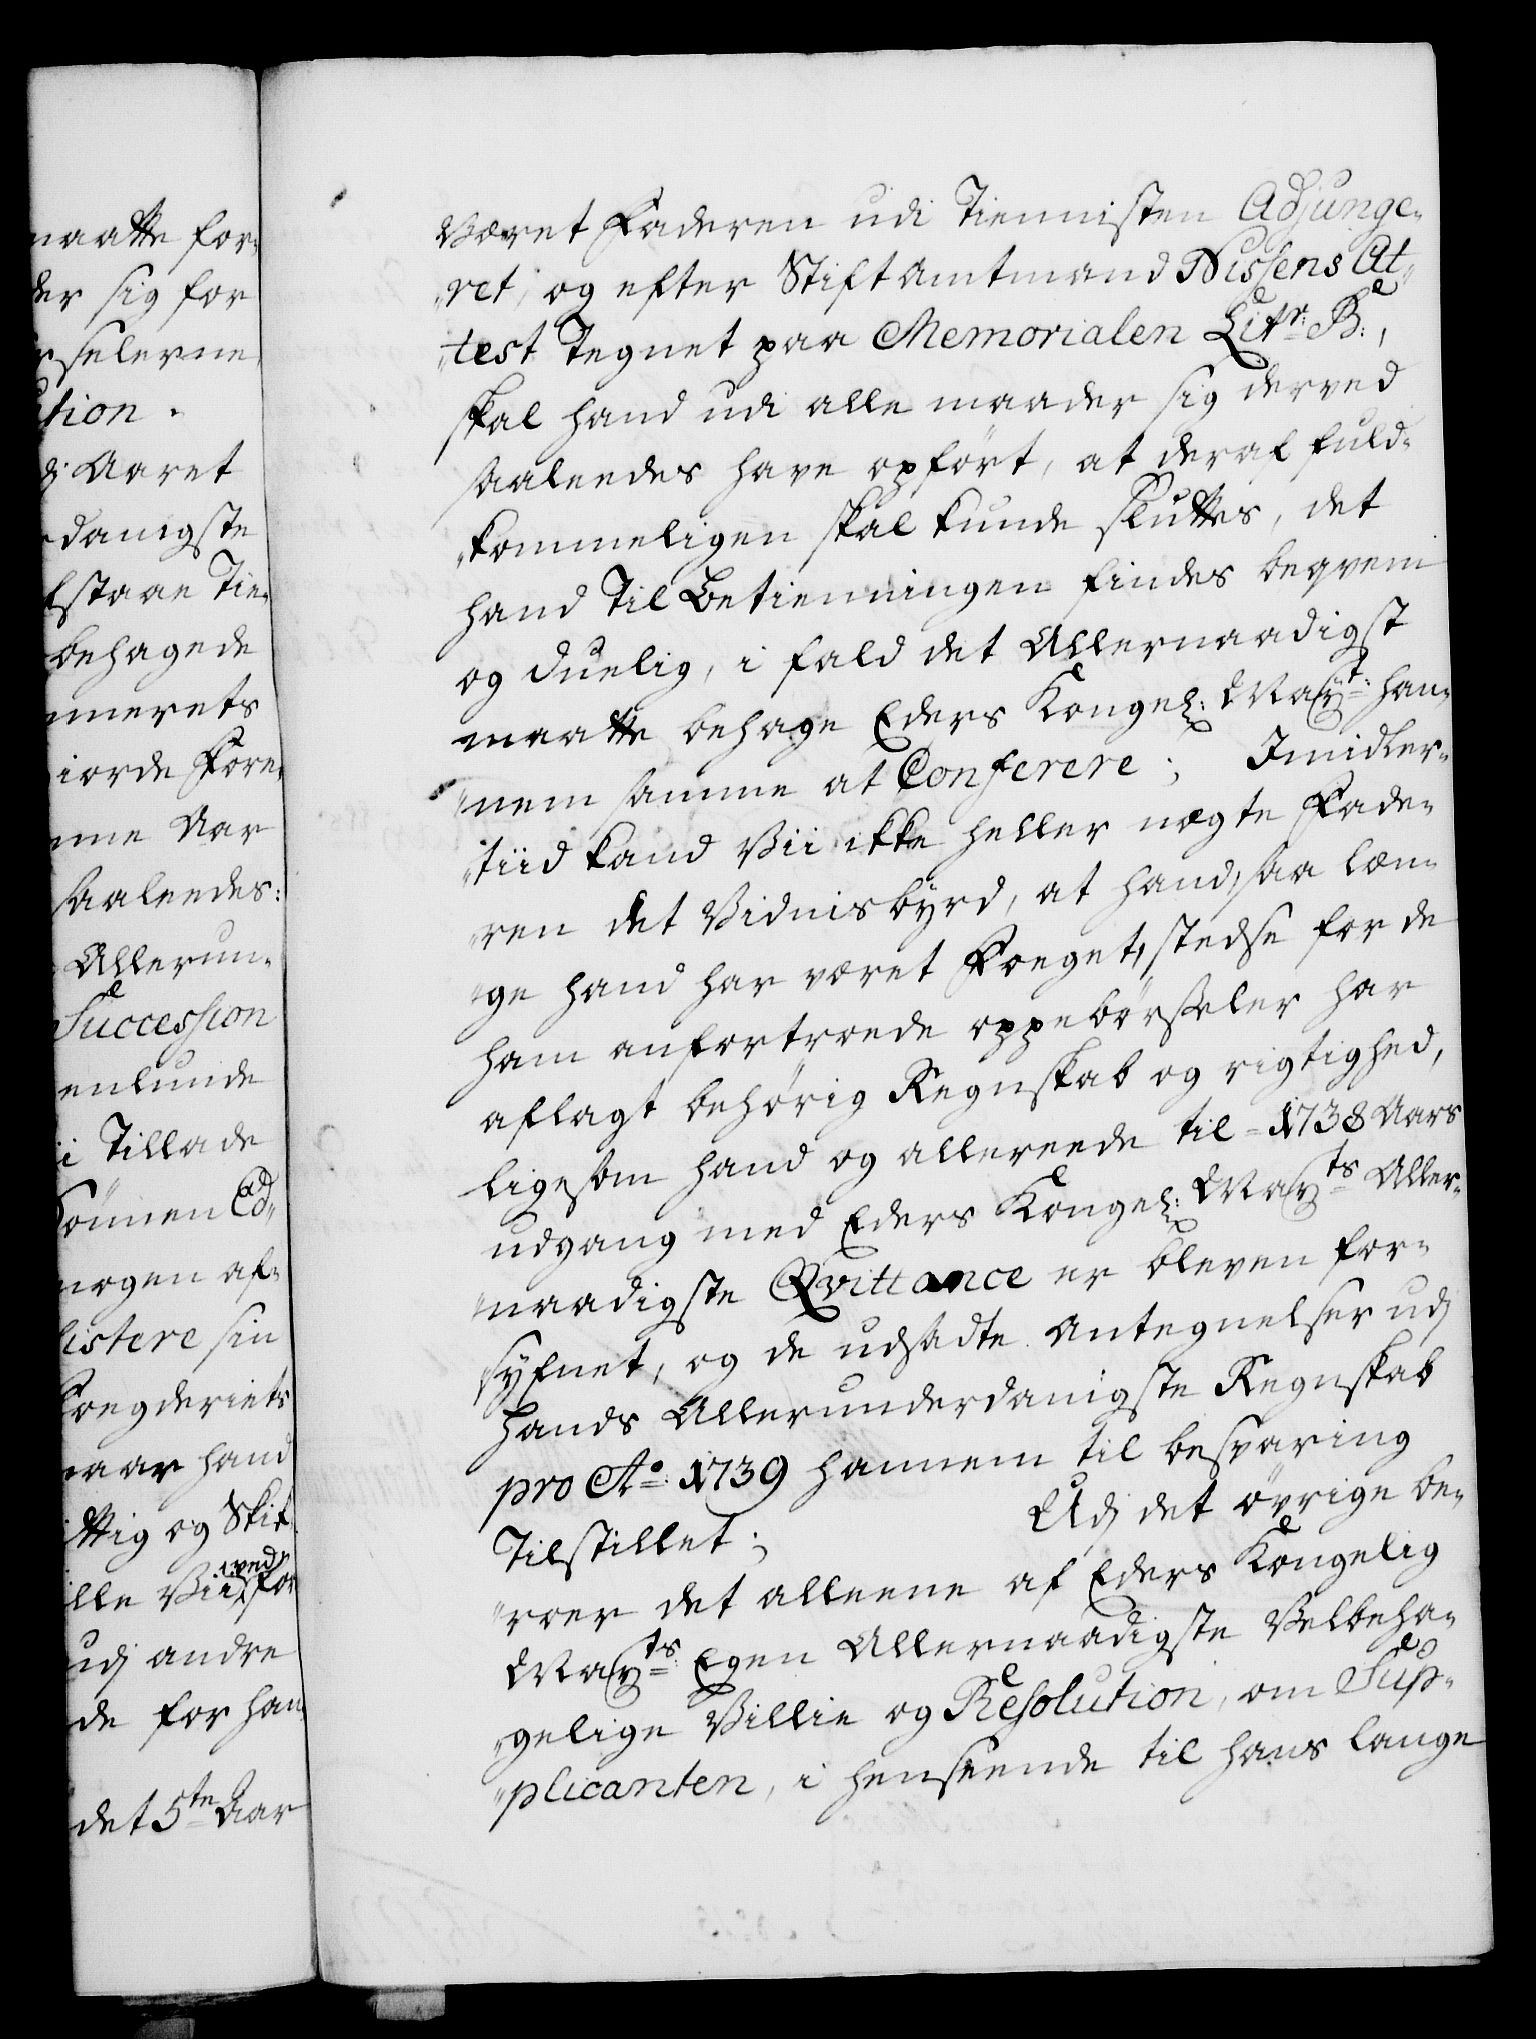 maatte for-
der sig for
selerne
tion.
di Aaret
danigste
staae Tie-
behagede
merets
iorde Fore-
nne Aar
saaleedes:
Allerun-
Succession
enlunde
ii Tillade
Sönnen Ad-
nogen af-
istere sin
Foegderiets
naar hand
ttig og Skik-
ille Vii ved for
udj andre
de for han
det 5te Aar
Været Faderen udi Tiennisten Adjunge-
„ret, og efter Stiftamtmand Nissens At-
„test Tegnet paa Memorialen Litr: B:,
skal hand udi alle maader sig derved
saaleedes have opført, at deraf fuld-
„kommeligen skal kunde sluttes, det
hand Til Betienningen findes beqvem
og duelig, i fald det Allernaadigst
maatte behage Eders Kongel: Mayt: han-
„nem samme at Conferere; Imidler-
„tiid kand Vii ikke heller nægte Fade-
„ren det Vidnisbyrd, at hand, saa læn-
„ge hand har været Foeget, stedse for de
ham anfortroede oppebørseler har
aflagt behørig Regnskab og rigtighed,
ligesom hand og allereede til 1738 Aars
udgang med Eders Kongel: Mayts Aller-
„naadigste Qvittance er bleven for-
„syfnet, og de udsadte Antegnelser udj
Hands Allerunderdanigste Regnskab
pro Ao: 1739 hannem til besvaring
Tilstillet; Udj det øvrige be-
„roer det alleene af Eders Kongelig
Mayts: Egen Allernaadigste Velbeha-
„gelige Villie og Resolution, om Sup-
„plicanten, i henseende til hans lange